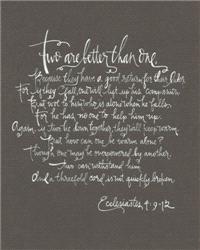 two are better than one
Because they have a good return for their labor
For if they fall, one will lift up his companion
But woe to him who is alone when he falls
For he has no one to help him up.
Again, if two lie down together, they will keep warm
But how can one be warm alone?
Though one may be overpowered by another,
two can withstand him
And a threefold cord is not quickly broken
Ecclesiastes, 4:9-12